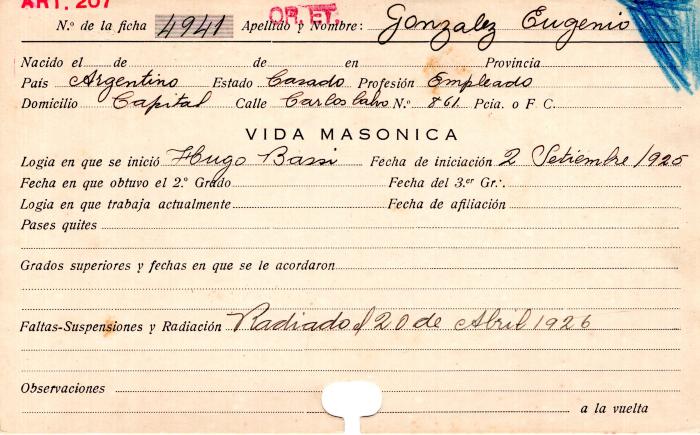 ART. 207
OR. ET.
N.º de la ficha 4941 Apellido y Nombre: Gonzalez Eugenio
Nacido el de de en Provincia
País Argentino Estado Casado Profesión Empleado
Domicilio Capital Calle Carlos Calvo N.º 861 Pcia. o F C.
VIDA MASONICA
Logia en que se inició Hugo Bassi Fecha de iniciación 2 Setiembre/1925
Fecha en que obtuvo el 2.º Grado Fecha del 3.er Gr∴
Logia en que trabaja actualmente Fecha de afiliación
Pases quites
Grados superiores y fechas en que se le acordaron
Faltas-Suspensiones y Radiación Radiado el 20 de Abril 1926
Observaciones
a la vuelta